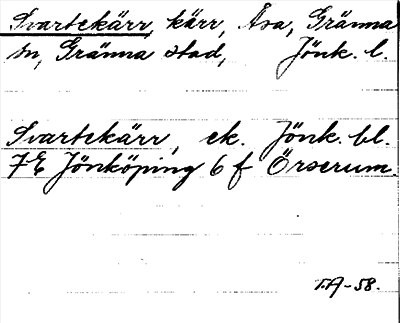 Svartekärr, kärr, Åsa, Gränna
sn, Gränna stad, Jönk. l.
Svartekärr, ek. Jönk. bl.
7E Jönköping 6 f Örserum.
T.A-58.